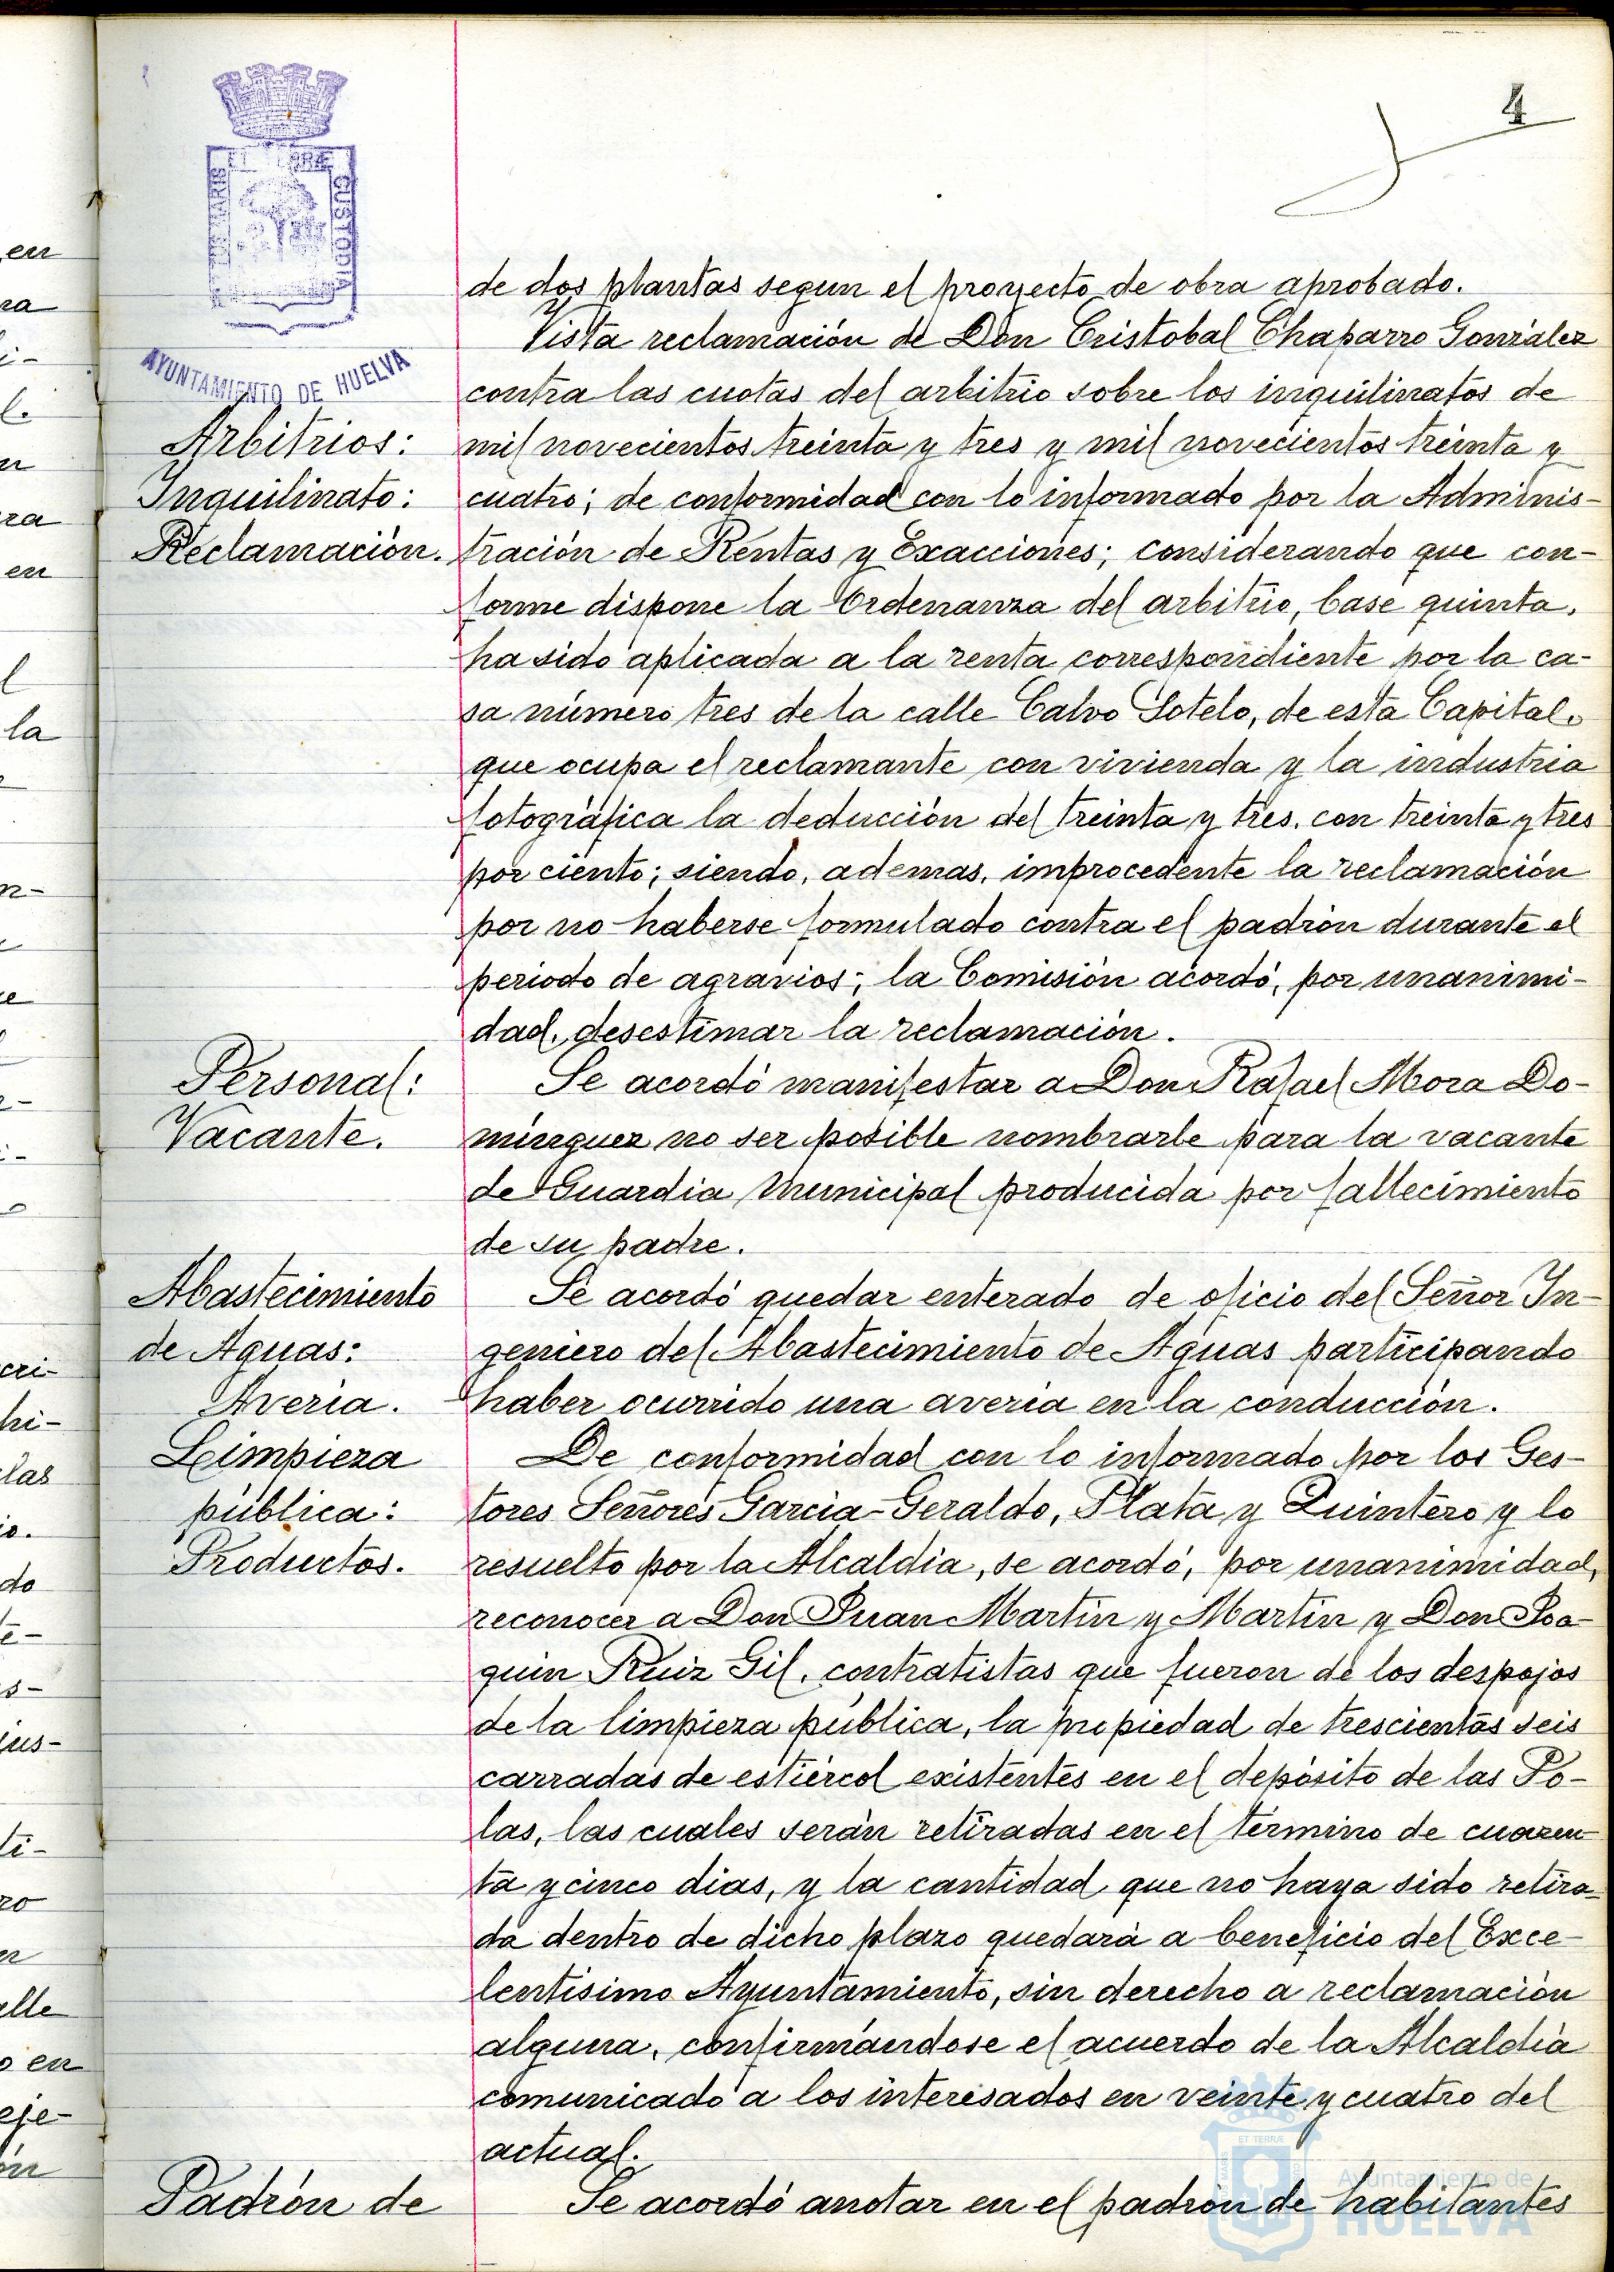 4
ET TERRÆ
CUSTODIA
AYUNTAMIENTO DE HUELVA
de dos plantas segun el proyecto de obra aprobado.
Vista reclamación de Don Cristobal Chaparro González
contra las cuotas del arbitrio sobre los inquilinatos de
Arbitrios: mil novecientos treinta y tres y mil novecientos treinta y
Inquilinato: cuatro; de conformidad con lo informado por la Adminis-
Reclamación. tración de Rentas y Exacciones; considerando que con-
forme dispone la Ordenanza del arbitrio, base quinta,
ha sido aplicada a la renta correspondiente por la ca-
sa número tres de la calle Calvo Sotelo, de esta Capital,
que ocupa el reclamante con vivienda y la industria
fotográfica la deducción del treinta y tres, con treinta y tres
por ciento; siendo, ademas, improcedente la reclamación
por no haberse formulado contra el padrón durante el
periodo de agravios; la Comisión acordó, por unanimi-
dad, desestimar la reclamación.
Personal: Se acordó manifestar a Don Rafael Mora Do-
Vacante. minguez no ser posible nombrarle para la vacante
de Guardia Municipal producida por fallecimiento
de su padre.
Abastecimiento Se acordó quedar enterado de oficio del Señor In-
de Aguas: geniero del Abastecimiento de Aguas participando
Averia. haber ocurrido una averia en la conducción.
Limpieza De conformidad con lo informado por los Ges-
pública: tores Señores Garcia-Geraldo, Plata y Quintero y lo
Productos. resuelto por la Alcaldia, se acordó, por unanimidad,
reconocer a Don Juan Martin y Martin y Don Joa-
quin Ruiz Gil, contratistas que fueron de los despojos
de la limpieza pública, la propiedad de trescientas seis
carradas de estiércol existentes en el depósito de las Po-
las, las cuales serán retiradas en el término de cuaren-
ta y cinco dias, y la cantidad que no haya sido retira-
da dentro de dicho plazo quedará a beneficio del Exce-
lentisimo Ayuntamiento, sin derecho a reclamación
alguna, confirmándose el acuerdo de la Alcaldia
comunicado a los interesados en veinte y cuatro del
actual.
Padrón de Se acordó anotar en el padrón de habitantes
Ayuntamiento de
HUELVA